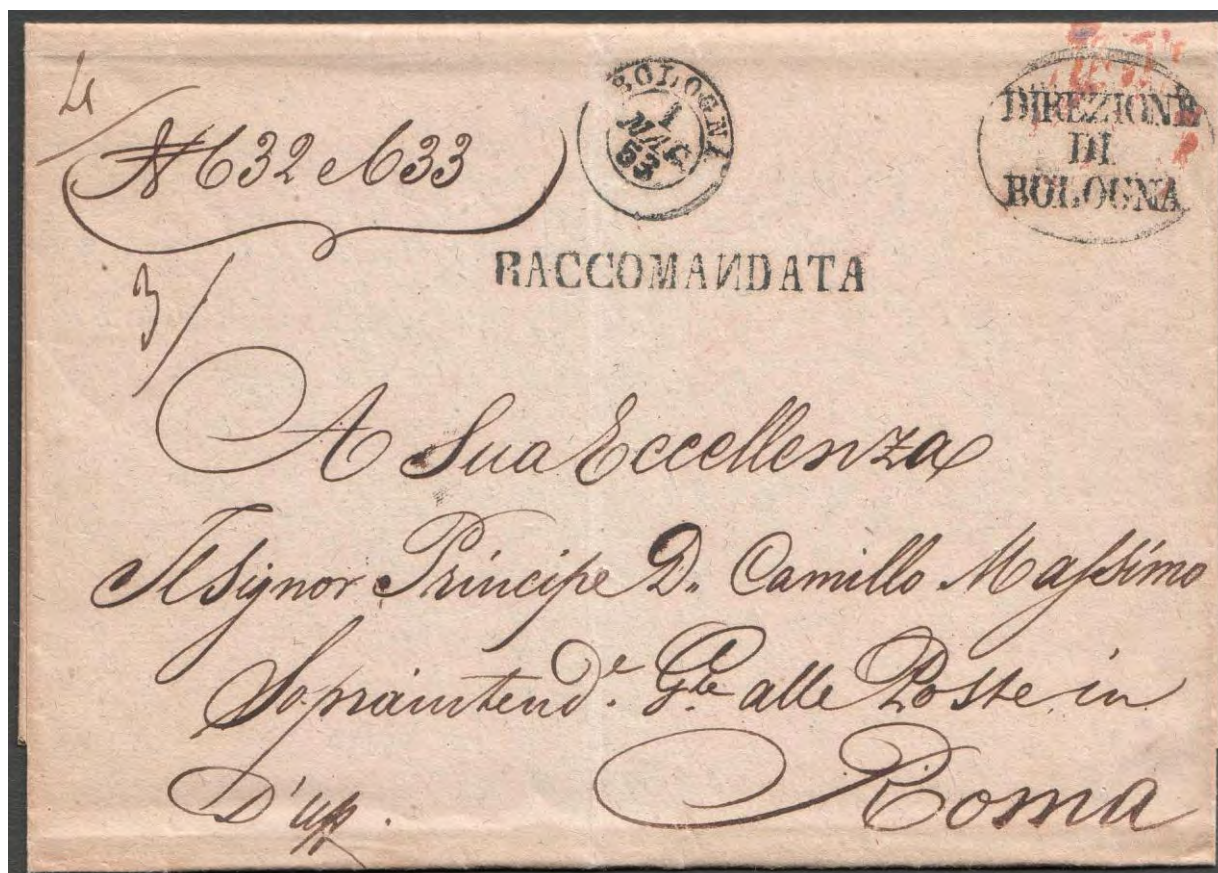 N 632 e 633
BOLOGNA
1
MAG
53
DIREZIONE
DI
BOLOGNA
RACCOMANDATA
3/
A Sua Eccellenza
Il Signor Principe D. Camillo Massimo
Sopraintend.e G.le alle Poste in
Roma
D'uff.